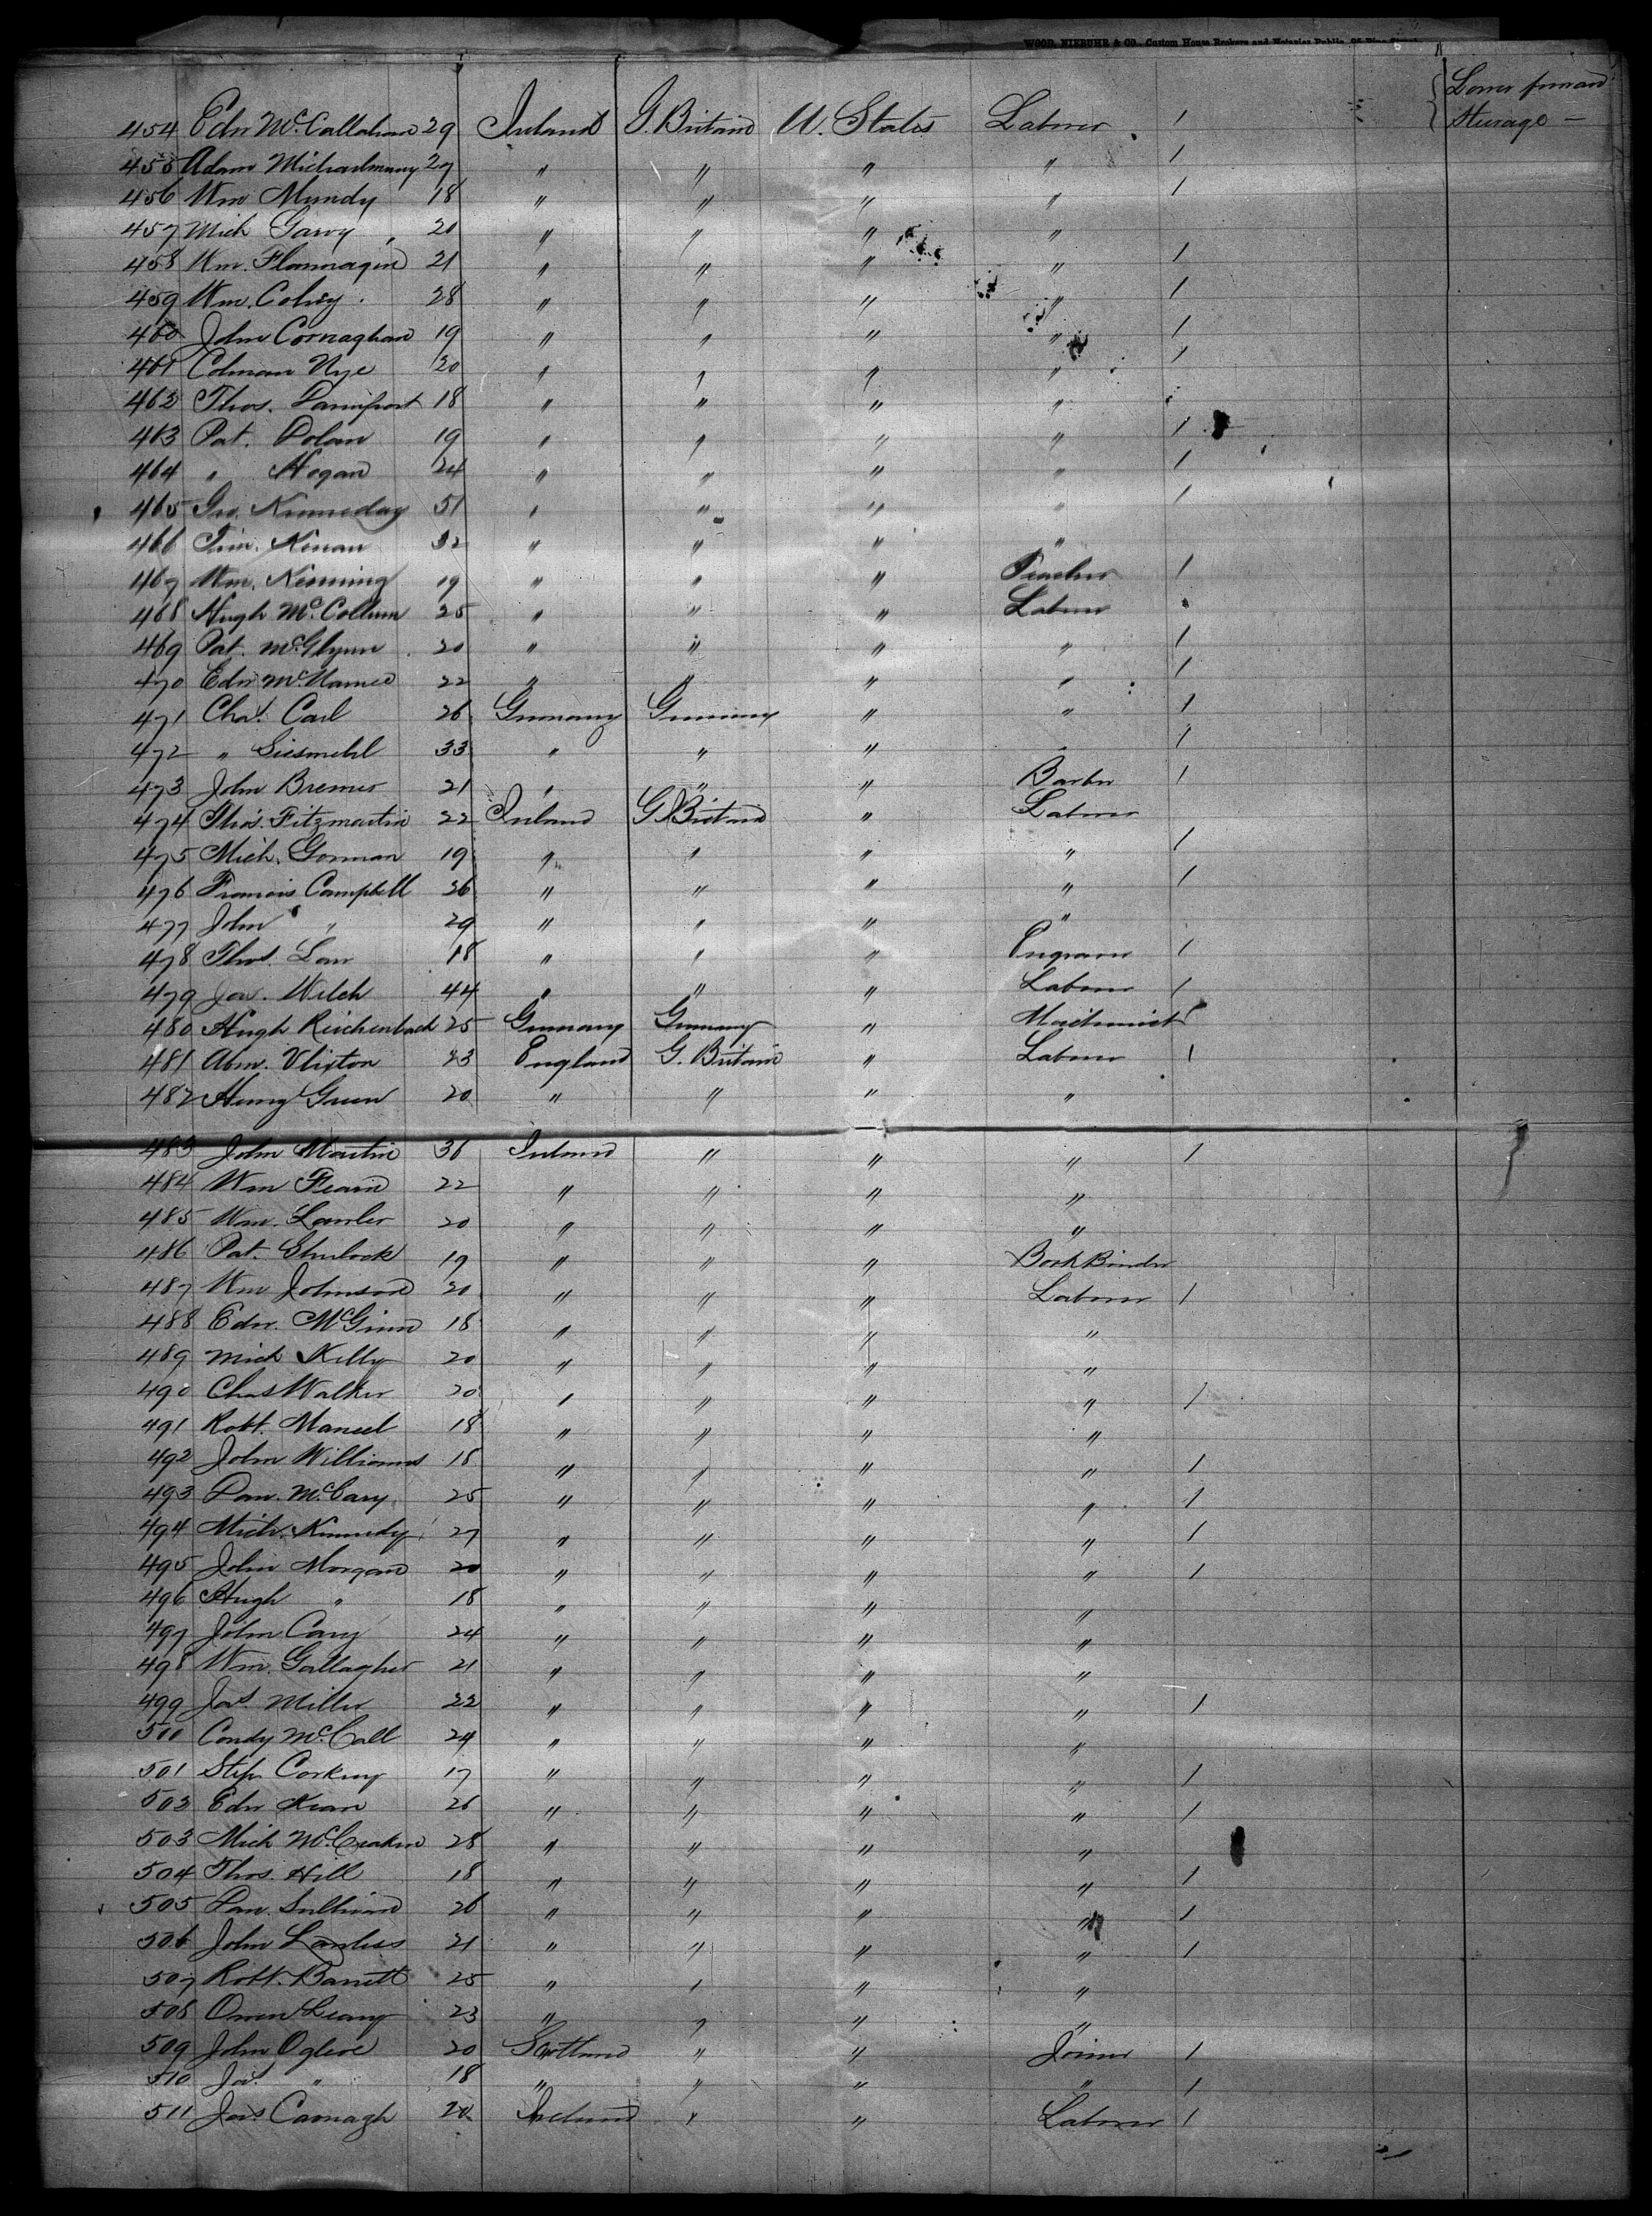 WOOD, NIEBUHR & CO., Custom House Brokers and Notaries Public,
Lower forward
Steerage —
454 Edw McCallahan 29 Ireland G. Britain U. States Laborer /
455 Adam 29 " " " " /
456 Wm Mundy 18 " " " " /
457 Mich Garvy 20 " " " "
458 Wm. Flannagin 21 " " " " /
459 Wm. 28 " " " " /
460 John Cornaghan 19 " " " " /
461 Colman Nye 20 " " " " /
462 Thos. 18 " " " "
463 Pat. Dolan 19 " " " " /
464 " Hogan 24 " " " " /
465 Geo. Kenneday 51 " " " " /
466 Tim. 32 " " " "
467 Wm. 19 " " " Teacher /
468 Hugh McCollum 25 " " " Laborer
469 Pat. McGlynn 20 " " " " /
470 Edw McNamee 22 " " " " /
471 Chas. Carl 26 Germany Germany " " /
472 " 33 " " " " /
473 John Bremer 21 " " " Barber /
474 Thos. Fitzmartin 22 Ireland G. Britain " Laborer
475 Mich. Gorman 19 " " " " /
476 Francis Campbell 26 " " " " /
477 John " 29 " " " "
478 Thos. Law 18 " " " Engraver /
479 Jas. Welch 44 " " " Laborer /
480 Hugh Reichenbach 25 Germany Germany " Machinist /
481 Abm. Vlixton 23 England G. Britain " Laborer /
482 Henry Green 20 " " " "
483 John Martin 36 Ireland " " " /
484 Wm 22 " " " "
485 Wm. Lawler 20 " " " "
486 Pat. Shulock 19 " " " Book Binder
487 Wm Johnson 20 " " " Laborer /
488 Edw. McGinn 18 " " " "
489 Mich Kelly 20 " " " "
490 Chas Walker 20 " " " " /
491 Robt. Mancel 18 " " " "
492 John Williams 18 " " " " /
493 Dan. McCary 25 " " " " /
494 Mich. Kennedy 27 " " " " /
495 John Morgan 20 " " " " /
496 Hugh " 18 " " " "
497 John Cary 24 " " " "
498 Wm. Gallagher 21 " " " "
499 Jas. Miller 22 " " " " /
500 Condy McCall 24 " " " "
501 Step Corkery 17 " " " " /
502 Edw Kean 26 " " " " /
503 Mich McCraken 28 " " " "
504 Thos. Hill 18 " " " " /
505 Dan. Sullivan 26 " " " " /
506 John Lawless 21 " " " " /
507 Robt. Barrett 25 " " " "
508 Owen Leary 23 " " " "
509 John Oglive 20 Scotland " " Joiner /
510 Jas. " 18 " " " " /
511 Jas Cavnagh 20 Ireland " " Laborer /